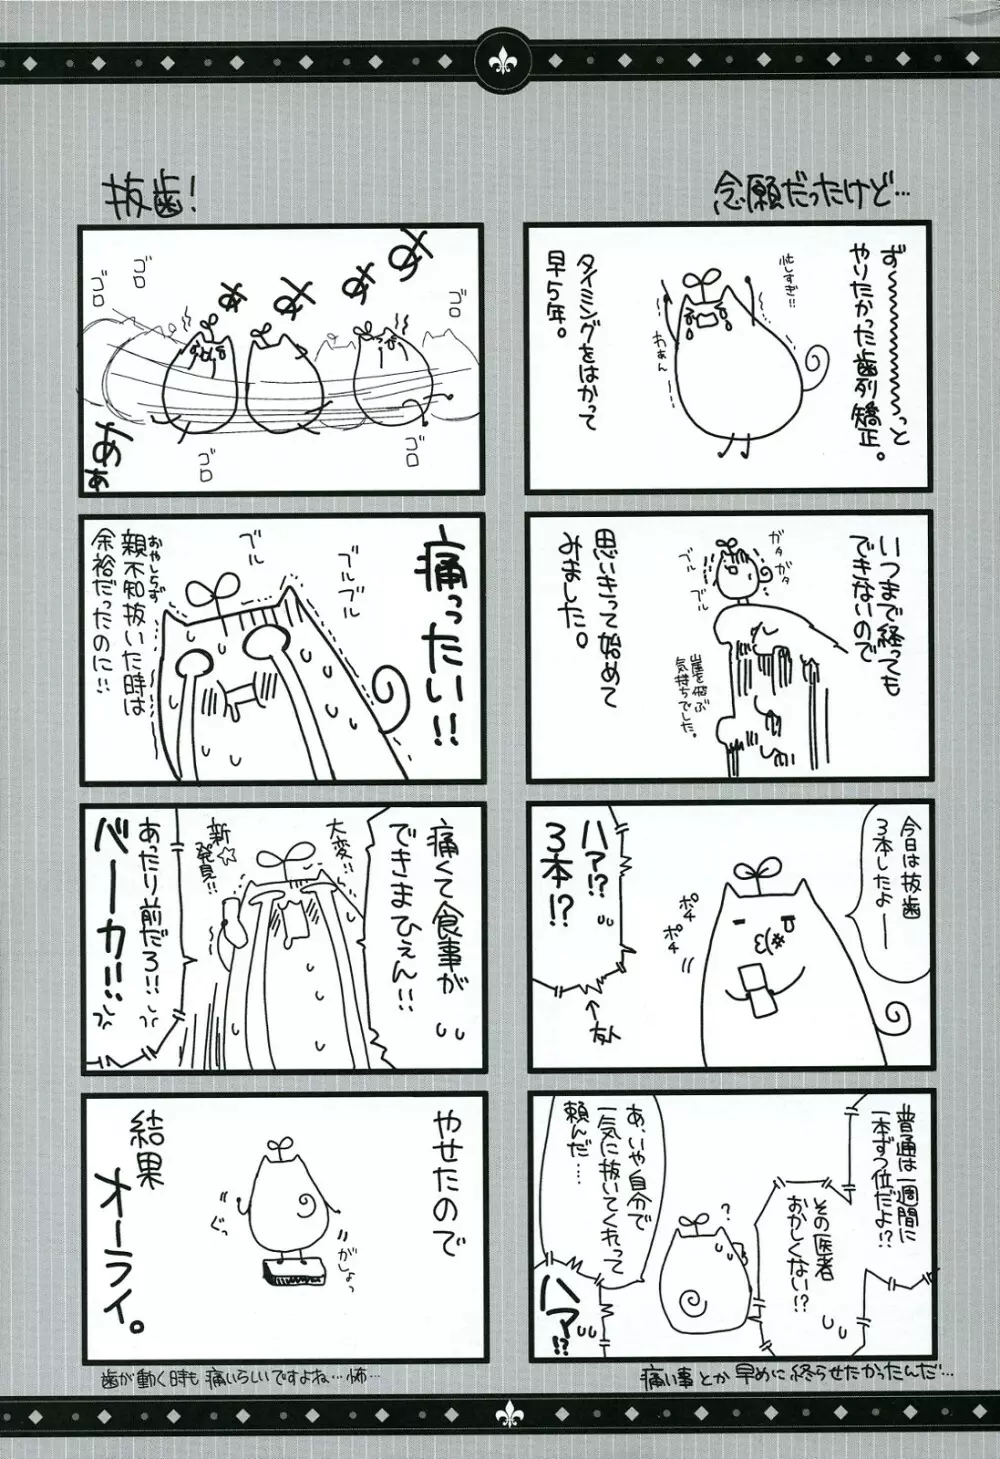 念願だったけど…
ず〜〜〜〜〜〜っと
やりたかった歯列矯正。
忙しすぎ!!
わぁん
タイミングをはかって
早5年。
いつまで経っても
できないので
ガタガタ
ブル
ブル
崖を飛ぶ
気持ちでした。
思いきって始めて
みました。
今日は抜歯
3本したよ――
ポチ
ポチ
ハァ!?
3本!?
←友人
普通は一週間に
一本ずつ位だよ!?
その医者
おかしくない!?
?
あ、いや自分で
一気に抜いてくれって
頼んだ……
ハァ!?
痛い事とか早めに終らせたかったんだ…
抜歯!
ゴロ
ゴロ
ゴロ
ゴロ
ゴロ
あ
あ
あ
あ
あぁ
痛ったい!!
ブル
ブル
ブル
親不知抜いた時は
おやしらず
余裕だったのに!!
痛くて食事が
できまひぇん!!
大変!!
新☆
発見!!
あたり前だろ!!
バーカ!!
やせたので
がしょっ
ぐっ
結果
オーライ。
歯が動く時も痛いらしいですよね…怖…